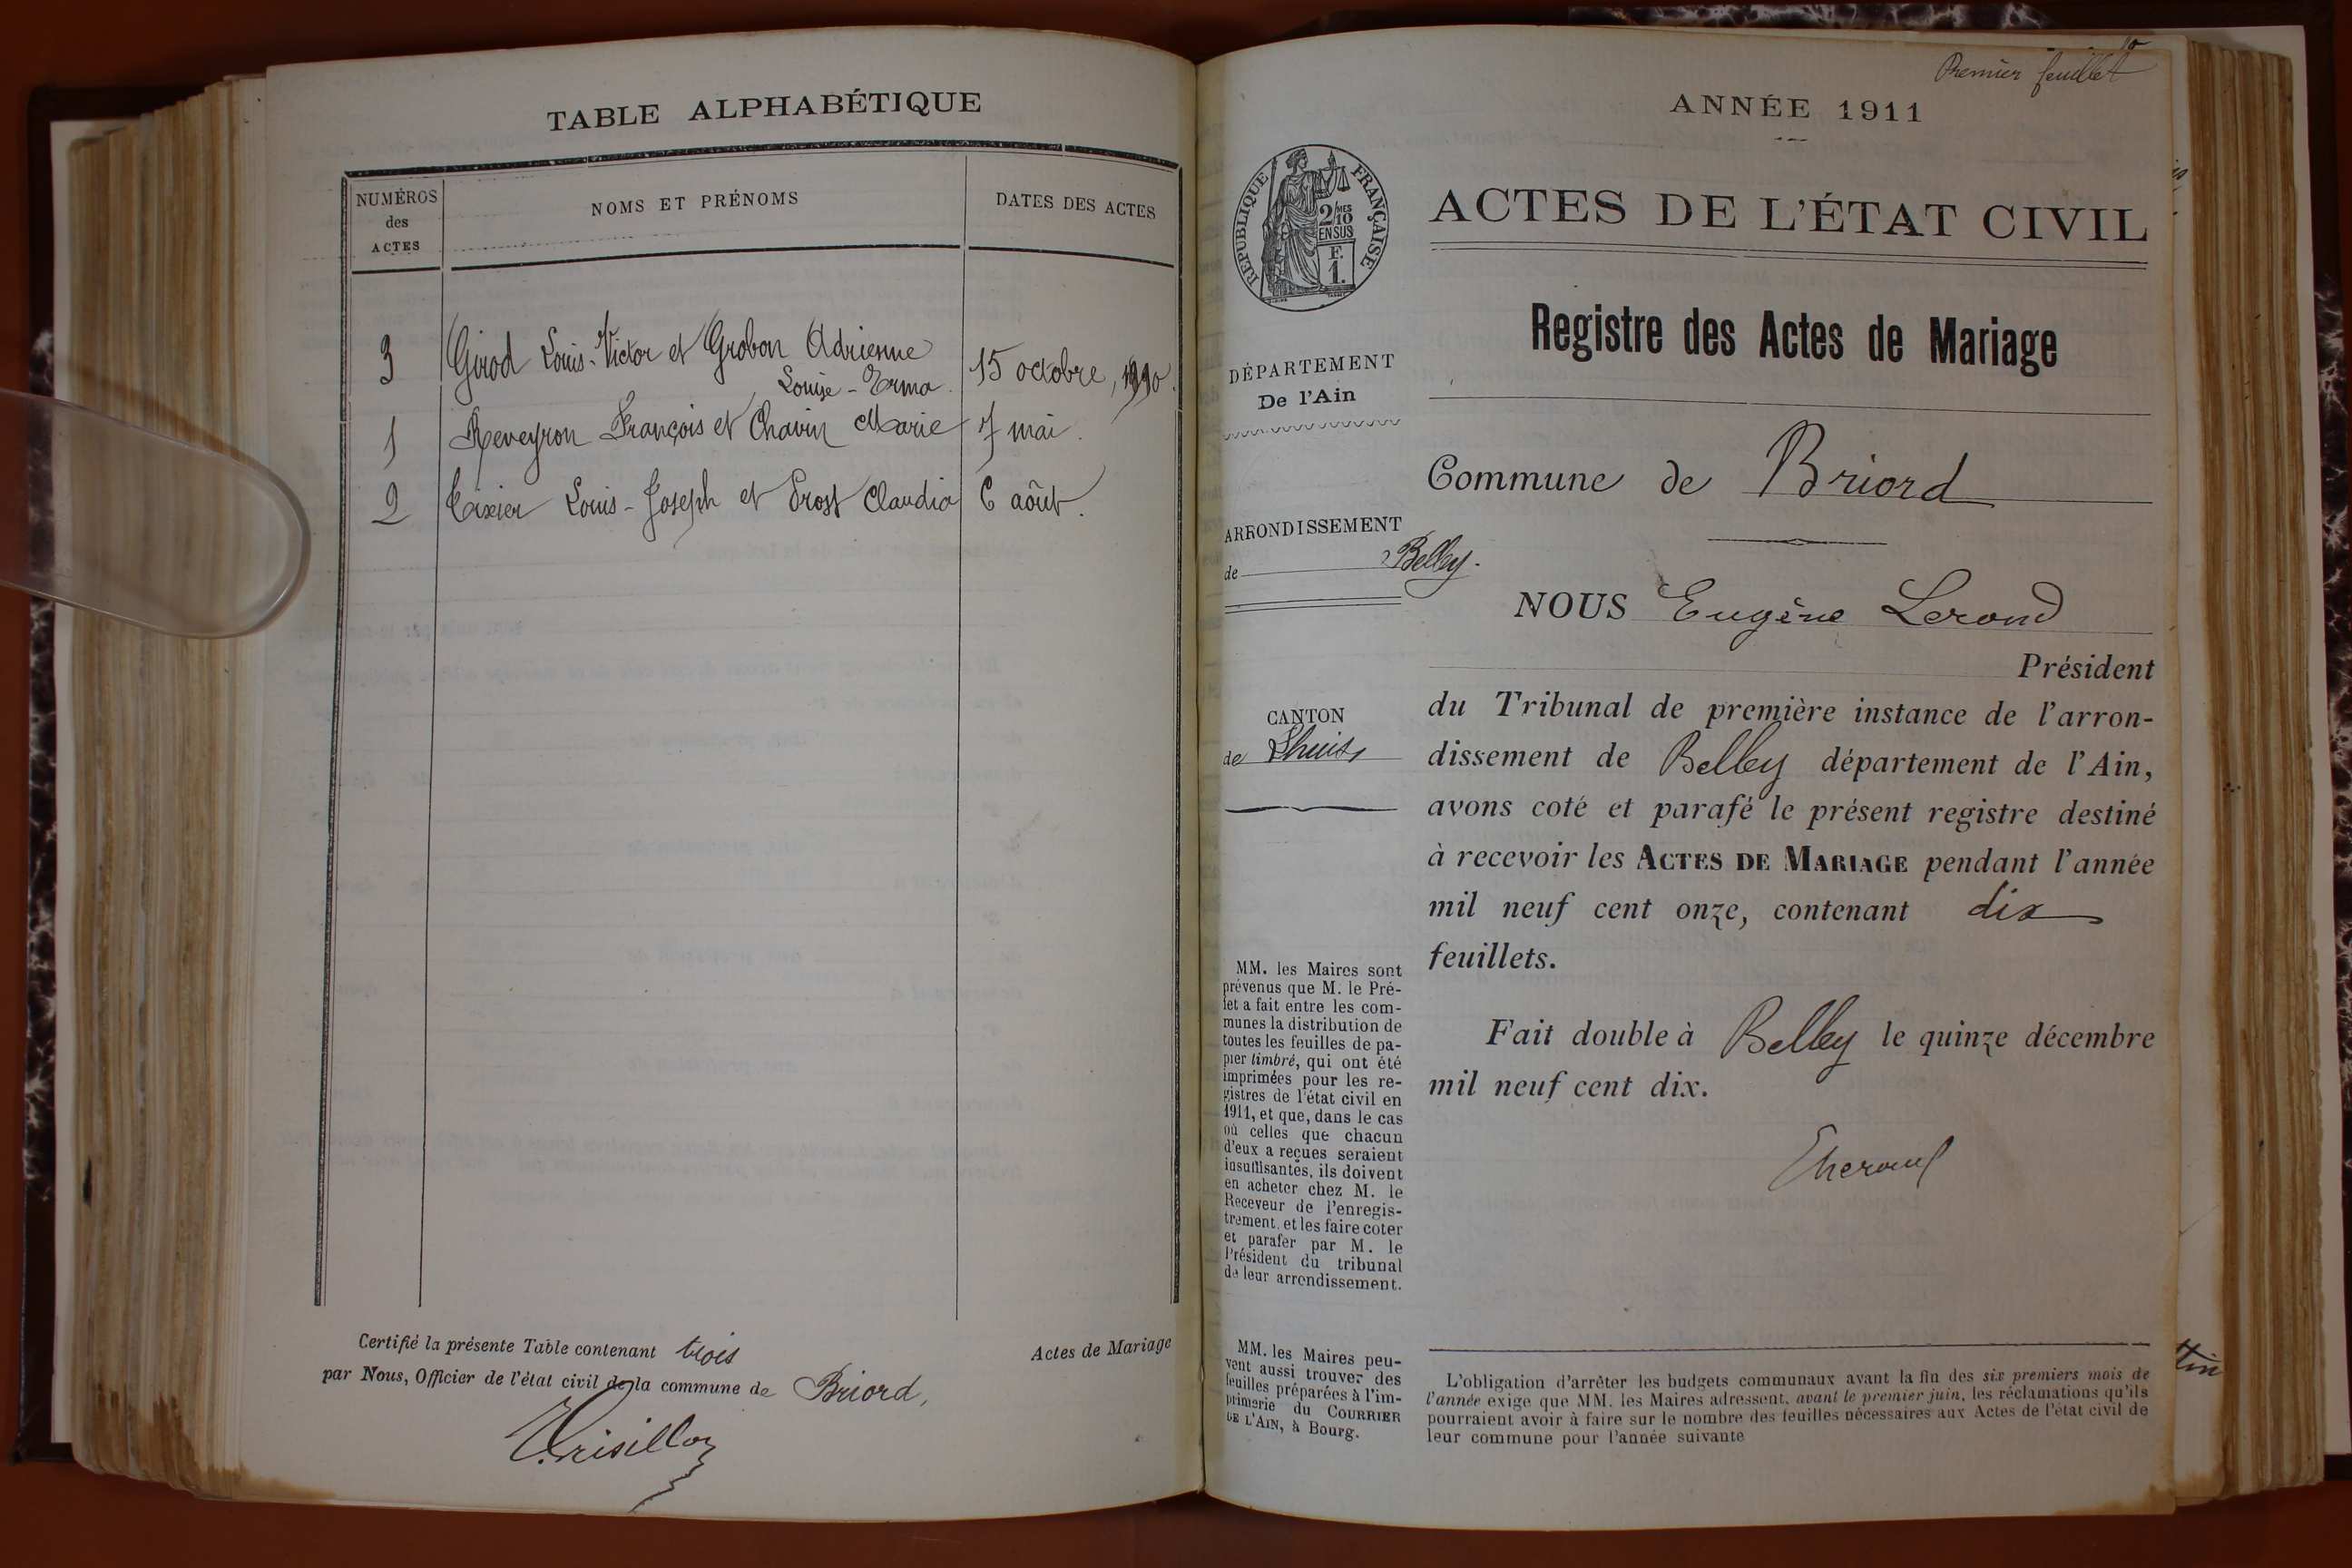 TABLE ALPHABÉTIQUE
NUMÉROS
des
ACTES
NOMS ET PRÉNOMS
DATES DES ACTES
3 Girod Louis-Victor et Grobon Adrienne
Louise-Erma 15 octobre, 1910.
1 Reveyron François et Chavin Marie 7 mai.
2 Tixier Louis-Joseph et Prost Claudia 6 août.
Certifié la présente Table contenant trois Actes de Mariage
par Nous, Officier de l'état civil de la commune de Briord,
Premier feuillet
ANNÉE 1911
RÉPUBLIQUE FRANÇAISE
2/10 MES
EN SUS
F.
1.
ACTES DE L'ÉTAT CIVIL
Registre des Actes de Mariage
DÉPARTEMENT
De l'Ain
Commune de Briord
ARRONDISSEMENT
de Belley.
NOUS Eugène Lerond
Président
CANTON
de Lhuis
du Tribunal de première instance de l'arron-
dissement de Belley département de l'Ain,
avons coté et parafé le présent registre destiné
à recevoir les ACTES DE MARIAGE pendant l'année
mil neuf cent onze, contenant dix
feuillets.
Fait double à Belley le quinze décembre
mil neuf cent dix.
MM. les Maires sont
prévenus que M. le Pré-
fet a fait entre les com-
munes la distribution de
toutes les feuilles de pa-
pier timbré, qui ont été
imprimées pour les re-
gistres de l'état civil en
1911, et que, dans le cas
où celles que chacun
d'eux a reçues seraient
insuffisantes, ils doivent
en acheter chez M. le
Receveur de l'enregis-
trement, et les faire coter
et parafer par M. le
Président du tribunal
de leur arrondissement.
MM. les Maires peu-
vent aussi trouver des
feuilles préparées à l'im-
primerie du COURRIER
DE L'AIN, à Bourg.
L'obligation d'arrêter les budgets communaux avant la fin des six premiers mois de
l'année exige que MM. les Maires adressent, avant le premier juin, les réclamations qu'ils
pourraient avoir à faire sur le nombre des feuilles nécessaires aux Actes de l'état civil de
leur commune pour l'année suivante